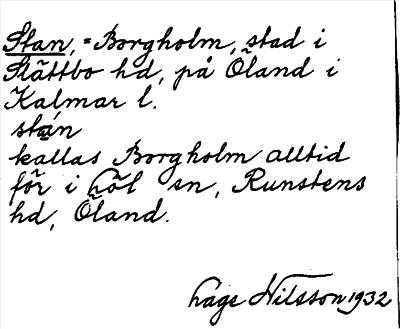 Stan, = Borgholm, stad i
Slättbo hd, på Öland i
Kalmar l.
stan
kallas Borgholm alltid
för i höl sn, Runstens
hd, Öland.
håge Nilsson 1932